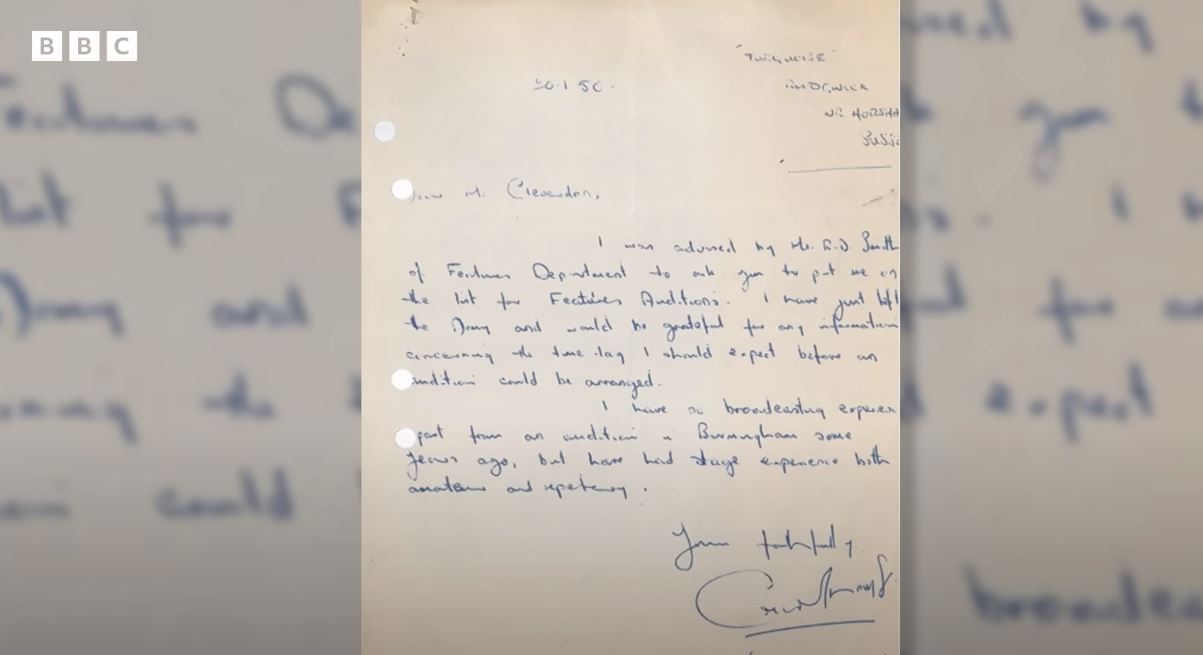 BBC
Dear Mr. Cleverdon,
I was advised by Mr. R.D Smith
of Features Department to ask you to put me on
the list for Features Auditions. I have just left
the Army and would be grateful for any information
concerning the time-lag I should expect before an
audition could be arranged.
I have no broadcasting experien
apart from an audition in Birmingham some
years ago, but have had stage experience both
amateur and repertory.
Yours faithfully